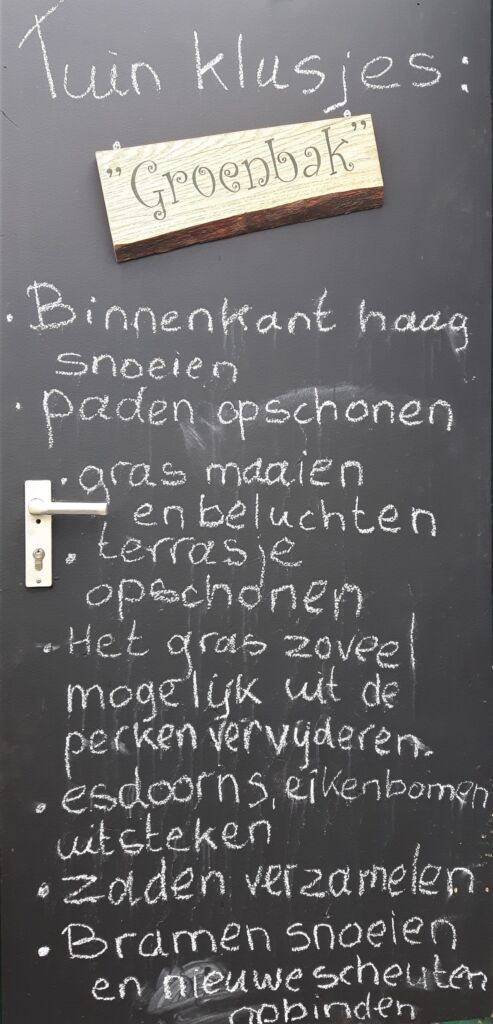 Tuin klusjes:
"Groenbak"
· Binnenkant haag
snoeien
· paden opschonen
· gras maaien
en beluchten
· terrasje
opschonen
- Het gras zoveel
mogelijk uit de
perken vervijderen.
· esdoorns, eikenbomen
uitsteken
· Zaden verzamelen
· Bramen snoeien
en nieuwe scheuten
opbinden